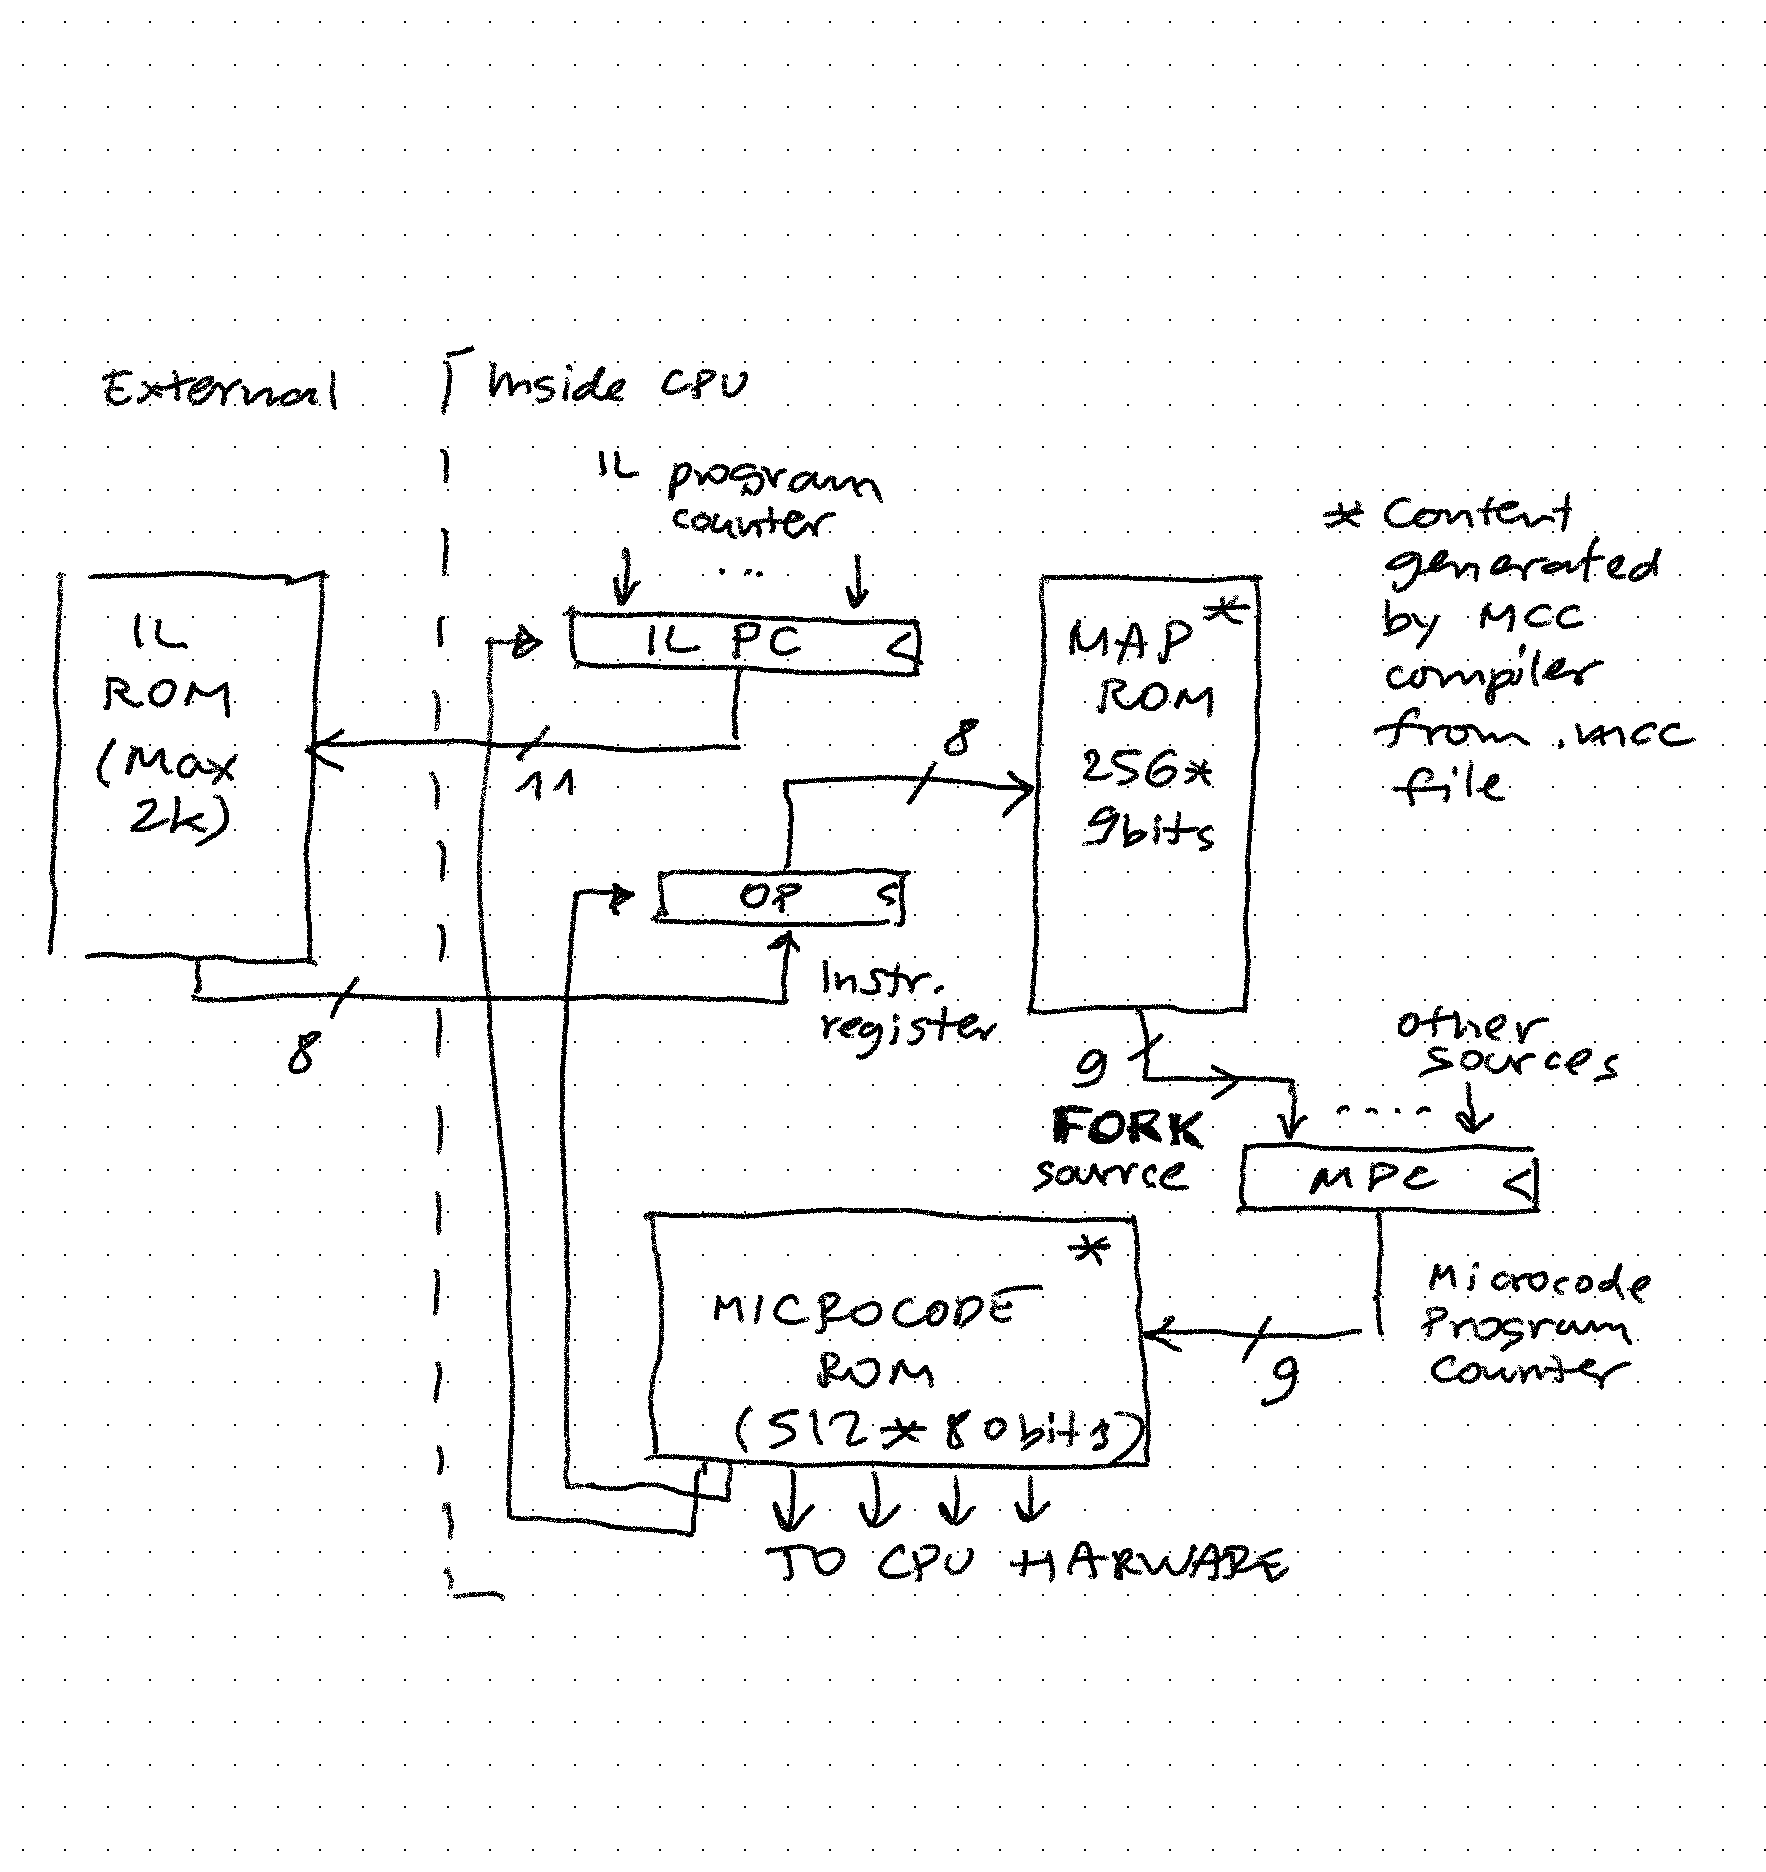 External
Inside CPU
IL program
counter
...
IL PC
IL
ROM
(Max
2k)
11
8
MAP *
ROM
256*
9bits
* Content
generated
by MCC
compiler
from .mcc
file
OP
Instr.
register
8
9
FORK
source
other
sources
....
MPC
Microcode
Program
Counter
9
*
MICROCODE
ROM
(512*80bits)
TO CPU HARWARE